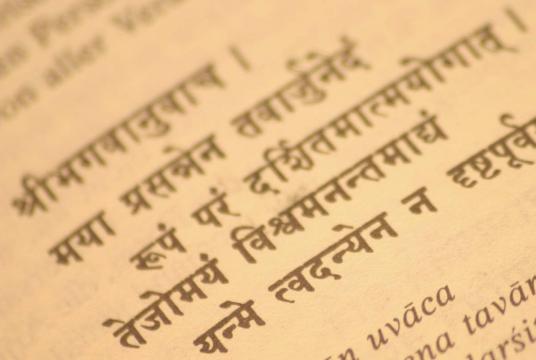 on aller
श्रीभगवानुवाच ।
मया प्रसन्नेन तवार्जुनेदं
रूपं परं दर्शितमात्मयोगात् ।
तेजोमयं विश्वमनन्तमाद्यं
यन्मे त्वदन्येन न दृष्टपूर्व
uvāca